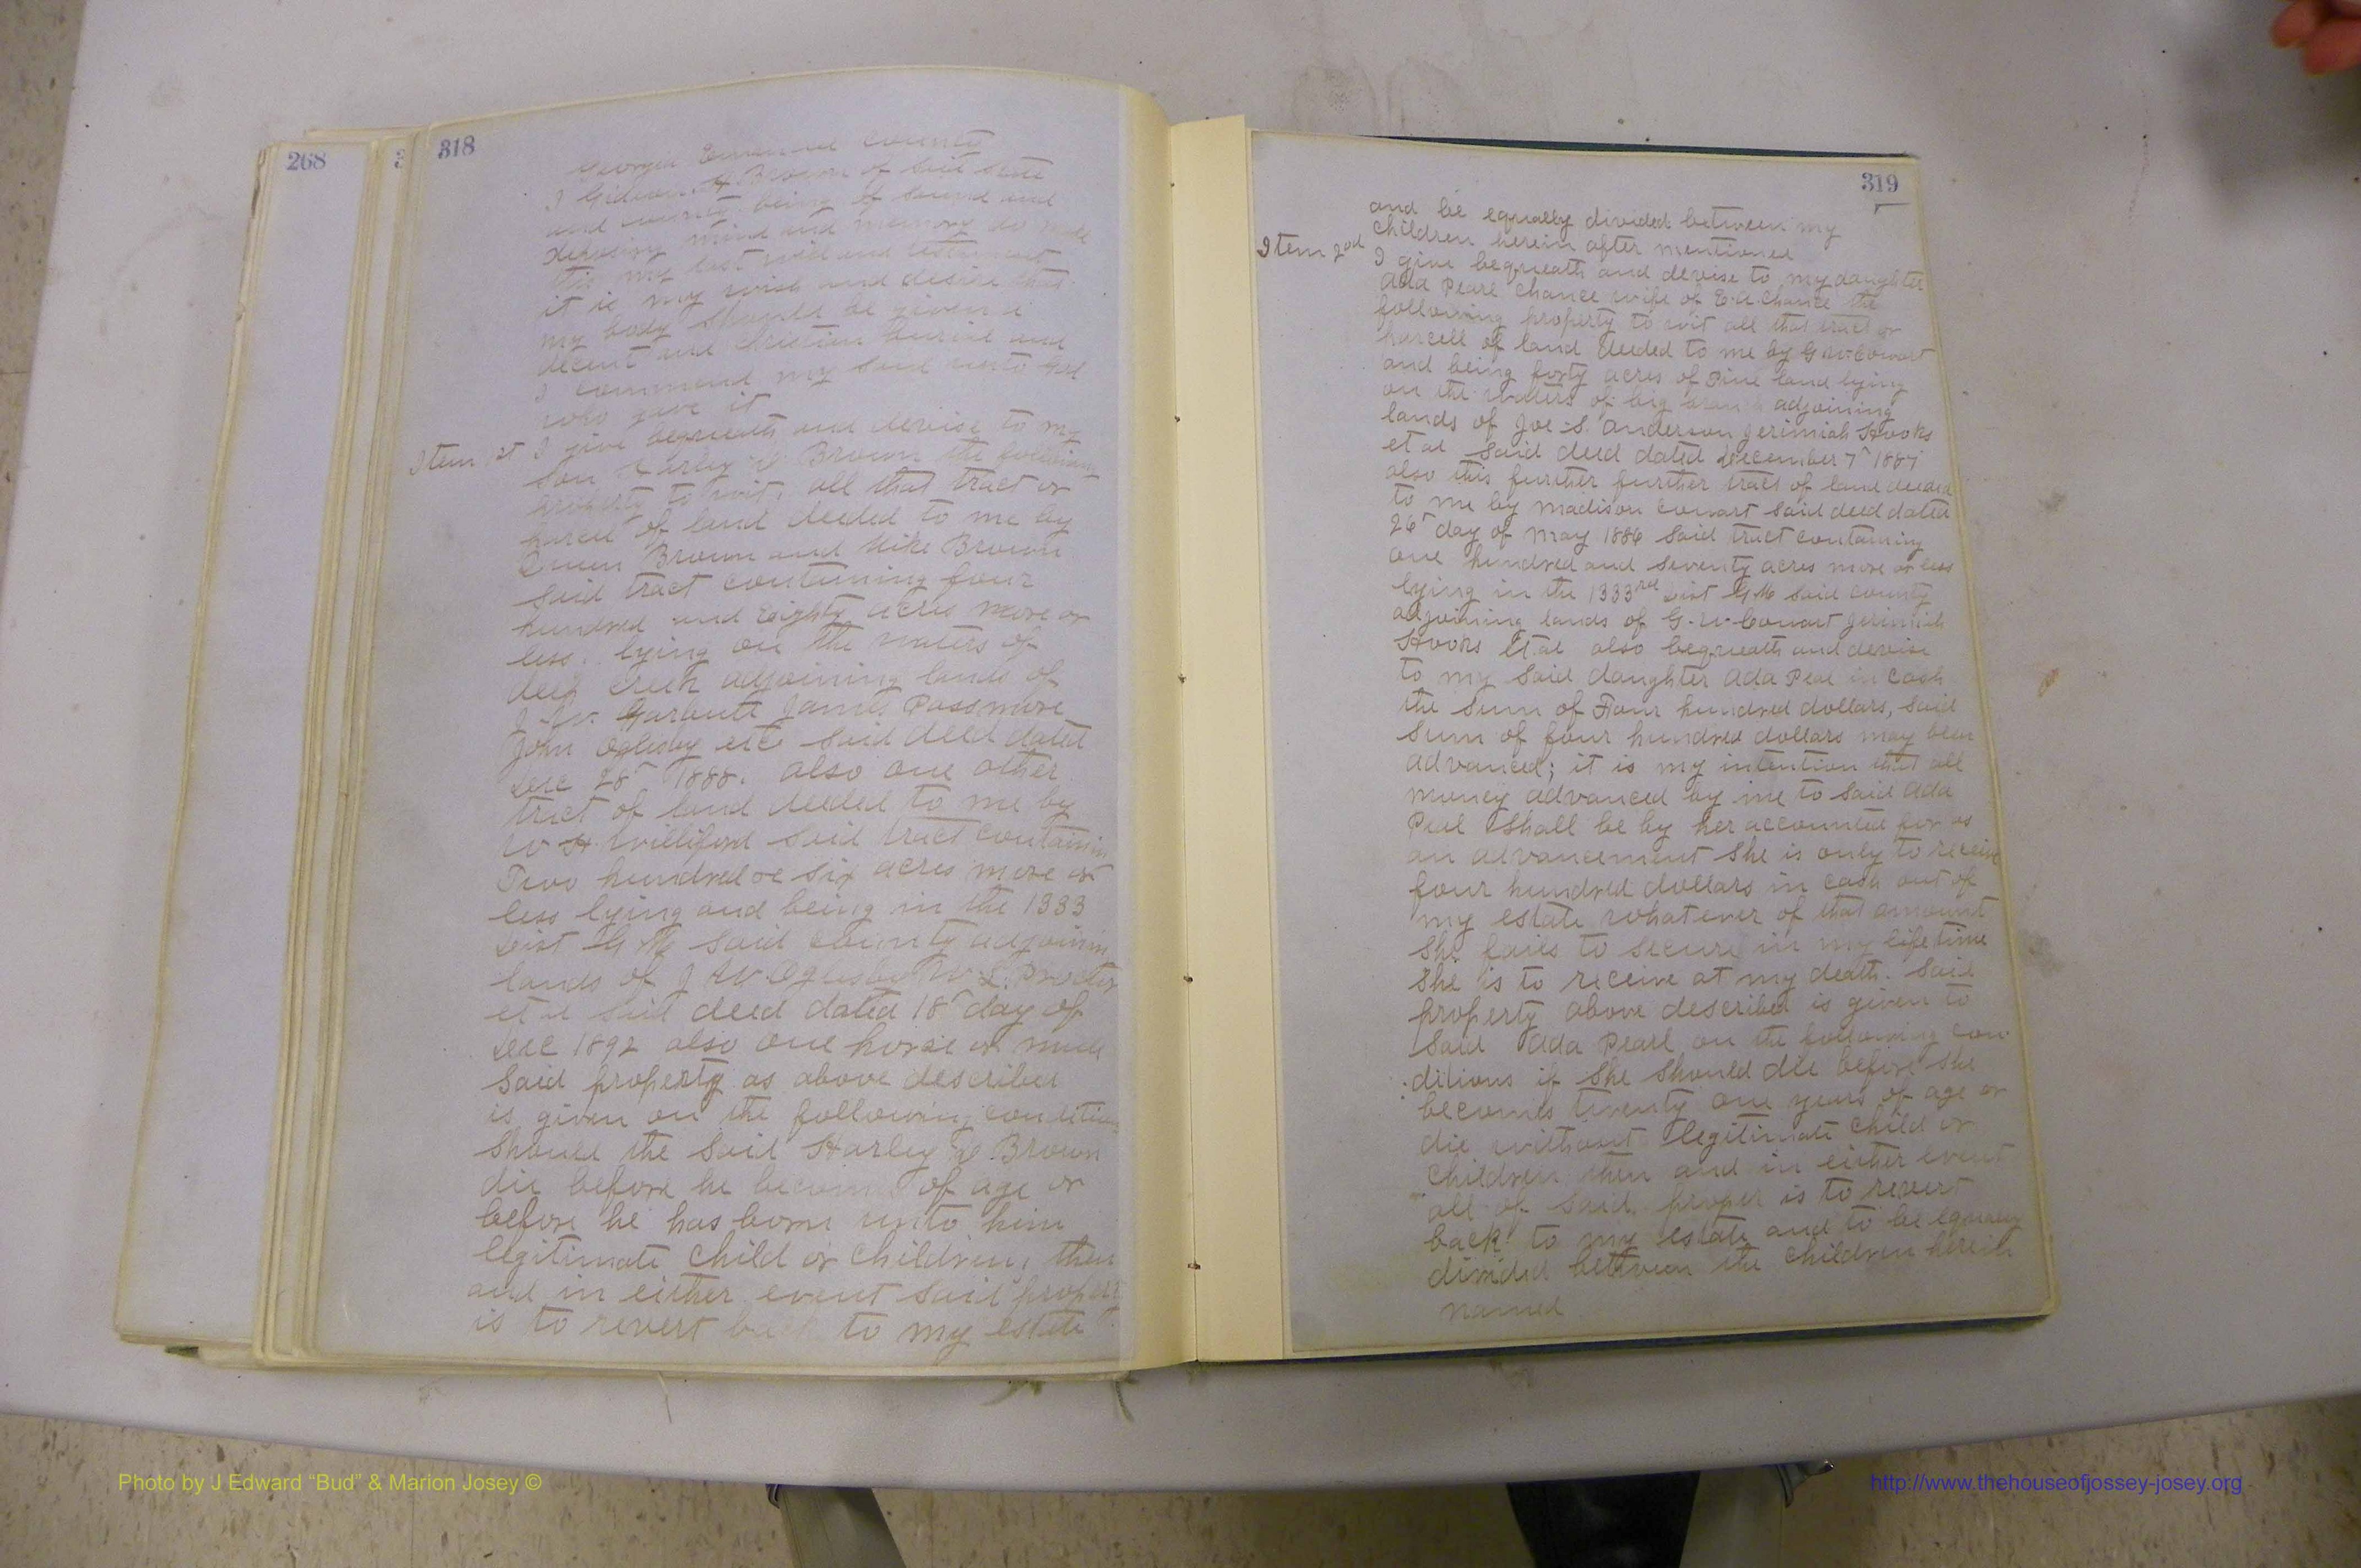 268
318
Georgia Emanuel County
I Gideon H Brown of said state
and county being of sound and
disposing mind and memory do make
this my last will and testament
it is my wish and desire that
my body should be given a
decent and Christian burial and
I commend my soul unto God
who gave it
Item 1st I give bequeath and devise to my
son Harley D. Brown the following
property to wit, all that tract or
parcel of land deeded to me by
Brown and Mike Brown
said tract containing four
hundred and Eighty acres more or
less. lying on the waters of
deep Creek adjoining lands of
J. W. Garbutt James Passmore
John Oglesby etc said deed dated
Dec 28" 1888. also one other
tract of land deeded to me by
W H Williford said tract containing
Two hundred & six acres more or
less lying and being in the 1333
Dist G M said county adjoining
lands of J W Oglesby W. L. Proctor
et al said deed dated 18" day of
Dec 1892 also one horse or mule
Said property as above described
is given on the following condition
Should the Said Harley D. Brown
die before he becomes of age or
before he has born unto him
legitimate child or children, then
and in either event said property
is to revert back to my estate
319
and be equally divided between my
children herein after mentioned
Item 2nd I give bequeath and devise to my daughter
Ada Pearl Chance wife of E. A. Chance the
following property to wit all that tract or
parcell of land deeded to me by G. W. Cowart
and being forty acres of Pine land lying
on the waters of big branch adjoining
lands of Joe S. Anderson Jerimiah Hooks
et al Said deed dated December 7" 1887
also this further further tract of land deeded
to me by Madison Cowart Said deed dated
26" day of May 1886 Said tract containing
one hundred and seventy acres more or less
lying in the 1333rd Dist G M said county
adjoining lands of G. W. Cowart Jerimiah
Hooks Et al also bequeath and devise
to my Said daughter Ada Peal in cash
the Sum of Four hundred dollars, said
Sum of four hundred dollars may been
advanced; it is my intention that all
money advanced by me to Said Ada
Peal Shall be by her accounted for as
an advancement She is only to receive
four hundred dollars in cash out of
my estate whatever of that amount
She fails to secure in my life time
She is to receive at my death. Said
property above described is given to
Said Ada Pearl on the following con-
ditions if She Should die before She
becomes twenty one years of age or
die without legitimate child or
children then and in either event
all of Said proper is to revert
back to my estate and to be equally
divided between the children herein
named
Photo by J Edward “Bud” & Marion Josey ©
http://www.thehouseofjossey-josey.org